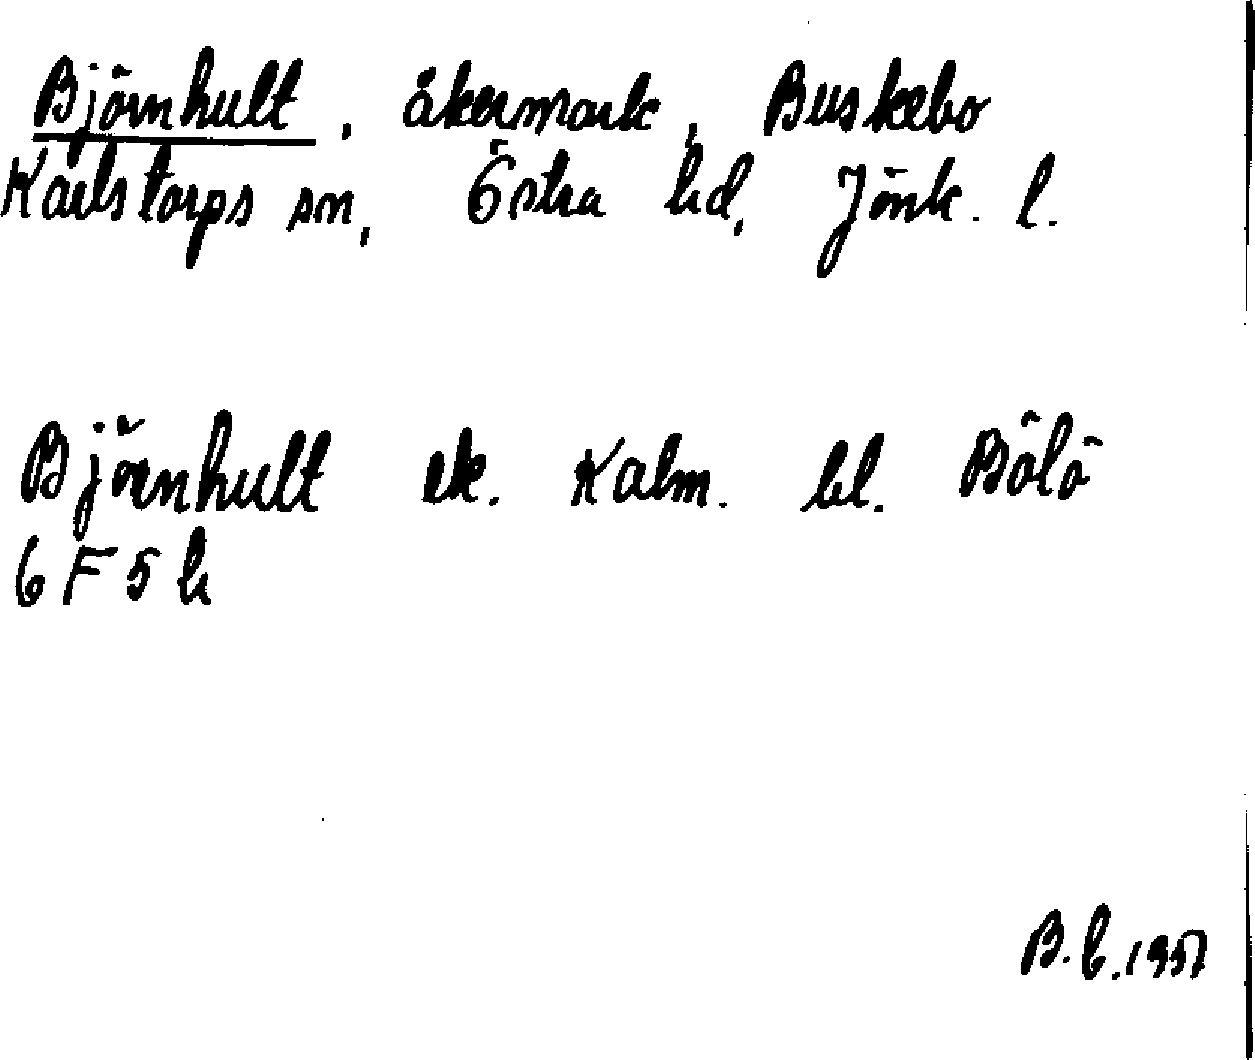 Björnhult, åkermark, Buskebo
Karlstorps sn, Östra hd, Jönk. l.
Björnhult ek. Kalm. bl. Bölö
6 F 5 h
B. C. 1957